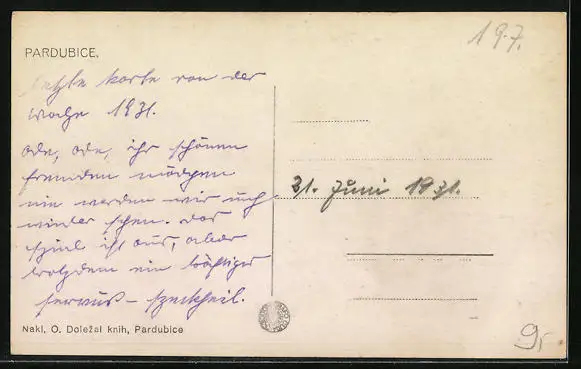 197.
PARDUBICE.
letzte karte von der
woche 1931.
ade, ade, ihr schönen
fremden mädchen
nie werden wir uch
wieder sehen. das
spiel ist aus, aber
trotzdem ein kräftiges
servus –
31. Juni 1931.
Nakl. O. Doležal knih, Pardubice